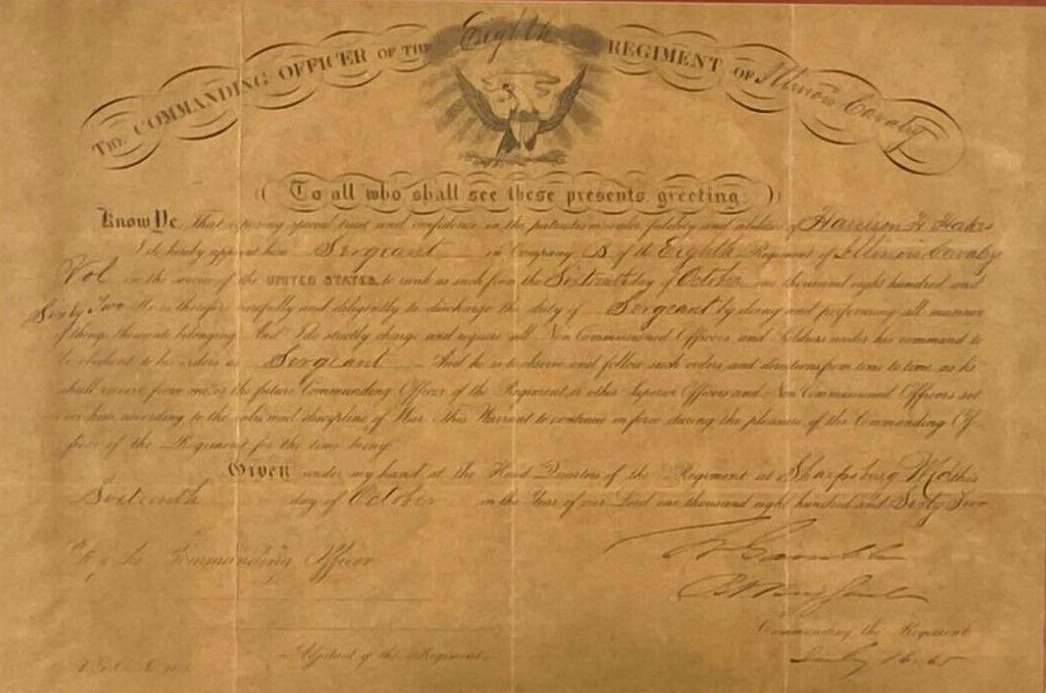 THE COMMANDING OFFICER OF THE Eighth REGIMENT OF Illinois Cavalry
To all who shall see these presents, greeting:
Know Ye, That reposing special trust and confidence in the patriotism, valor, fidelity and abilities of Harrison H.
I do hereby appoint him Sergeant in Company B of the Eighth Regiment of Illinois Cavalry
Vol in the service of the UNITED STATES, to rank as such from the Sixteenth day of October one thousand eight hundred and
Sixty Two He is therefore carefully and diligently to discharge the duty of Sergeant by doing and performing all manner
of things thereunto belonging. And I do strictly charge and require all Non Commissioned Officers and Soldiers under his command to
be obedient to his orders as Sergeant And he is to observe and follow such orders, and directions from time to time as he
shall receive from me or the future Commanding Officer of the Regiment, or other Superior Officers and Non Commissioned Officers set
over him, according to the rules and discipline of War. This Warrant to continue in force during the pleasure of the Commanding Of-
ficer of the Regiment for the time being.
Given under my hand at the Head Quarters of the Regiment at Sharpsburg Md this
Sixteenth day of October in the Year of our Lord one thousand eight hundred and Sixty Two
By the Commanding Officer
W Gamble
Commanding the Regiment
Adjutant of the Regiment